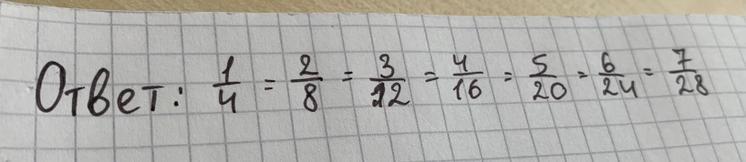 Ответ: 1/4 = 2/8 = 3/12 = 4/16 = 5/20 = 6/24 = 7/28